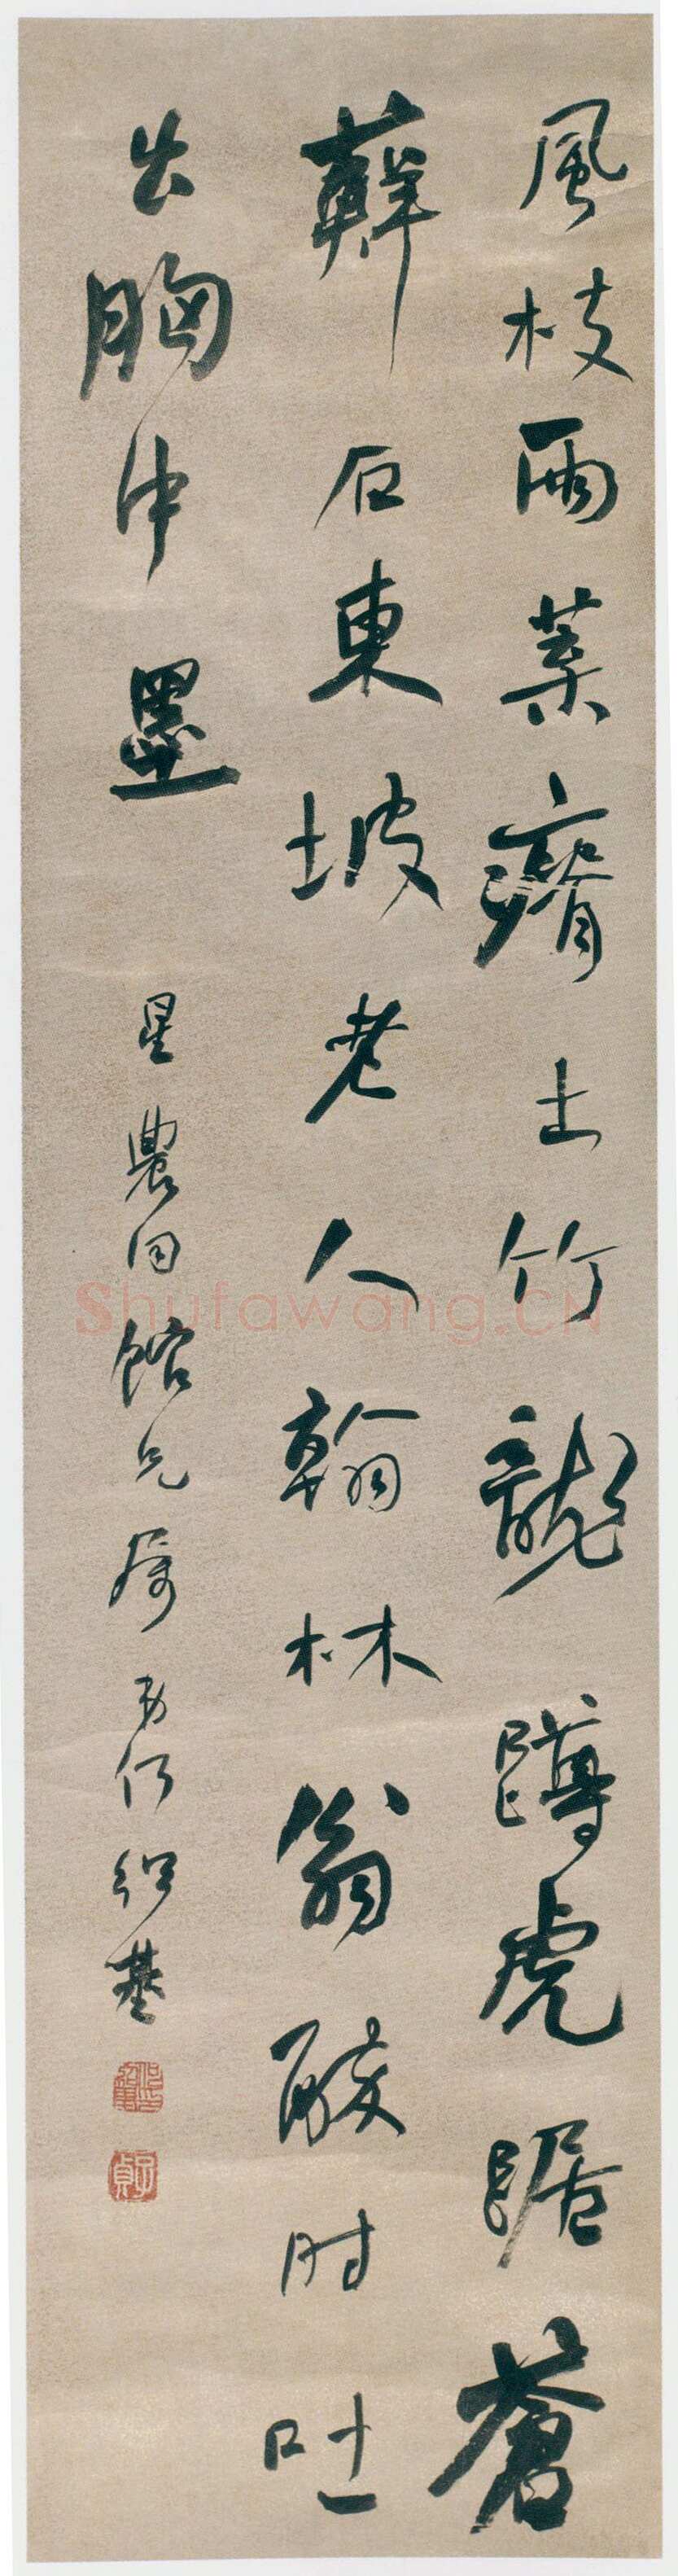 風枝雨葉瘠土竹龍蹲虎踞蒼
蘚石東坡老人翰林翁醉時吐
出胸中墨
星農同館兄屬 弟何紹基
子貞
Shufawang.CN